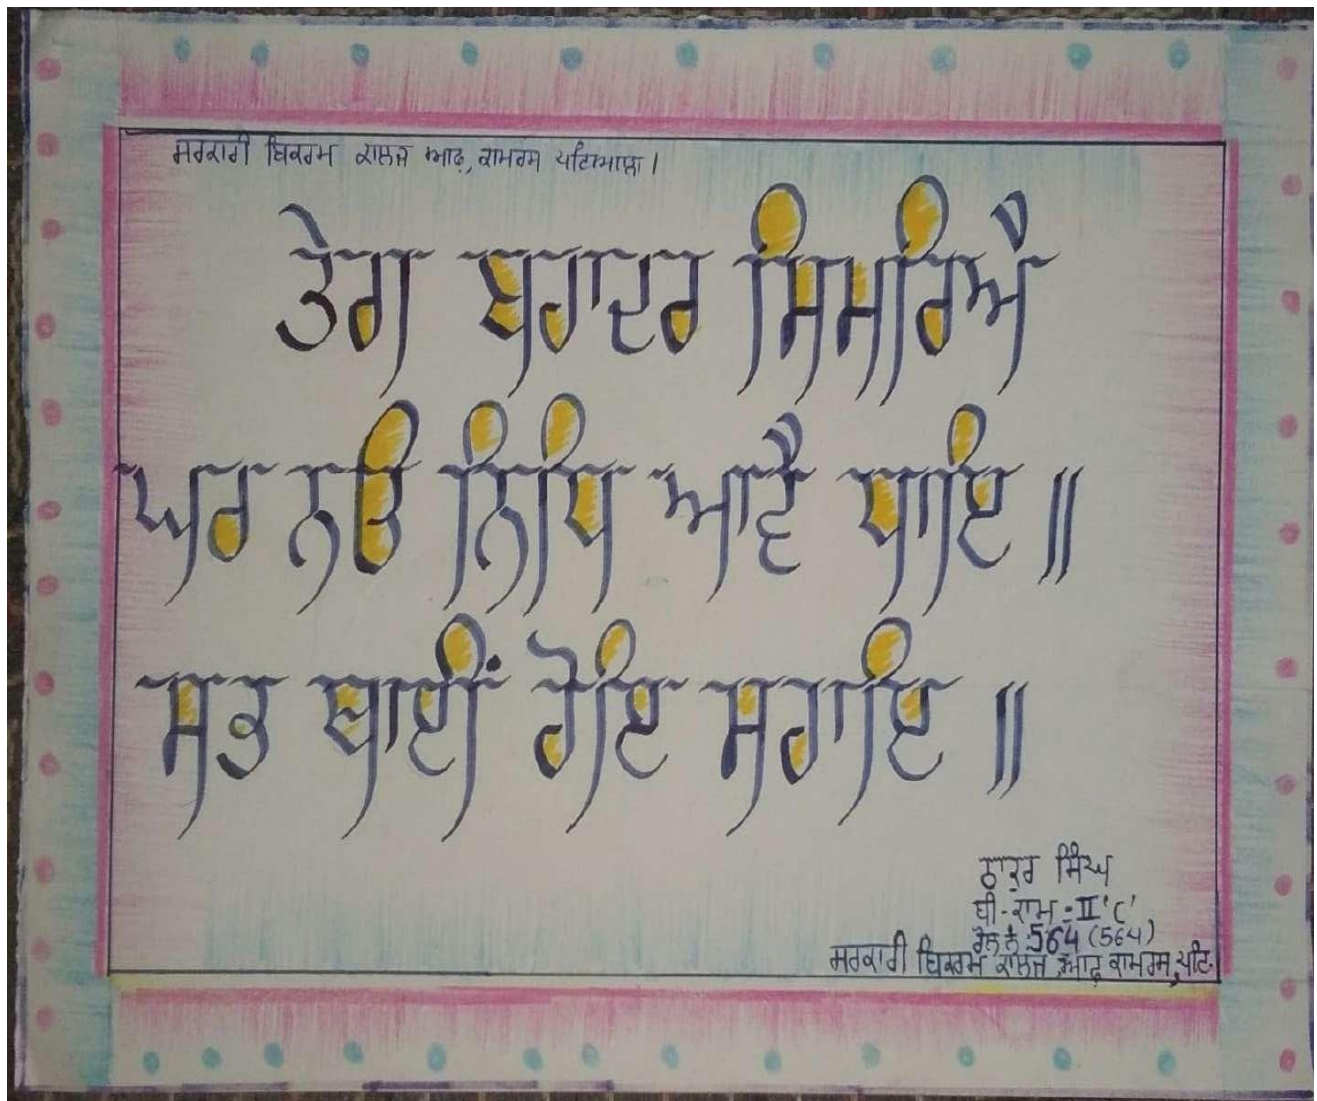 ਸਰਕਾਰੀ ਬਿਕਰਮ ਕਾਲਜ ਆਫ਼, ਕਾਮਰਸ ਪਟਿਆਲਾ।
ਤੇਗ ਬਹਾਦਰ ਸਿਮਰਿਐ
ਘਰ ਨਉ ਨਿਧਿ ਆਵੈ ਧਾਇ ॥
ਸਭ ਥਾਈਂ ਹੋਇ ਸਹਾਇ ॥
ਠਾਕੁਰ ਸਿੰਘ
ਬੀ-ਕਾਮ-II 'C'
ਰੋਲ ਨੰ: 564 (564)
ਸਰਕਾਰੀ ਬਿਕਰਮ ਕਾਲਜ ਆਫ਼ ਕਾਮਰਸ, ਪਟਿ.